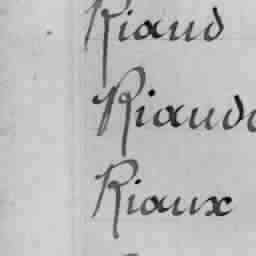 Riaud
Riaud
Riaux